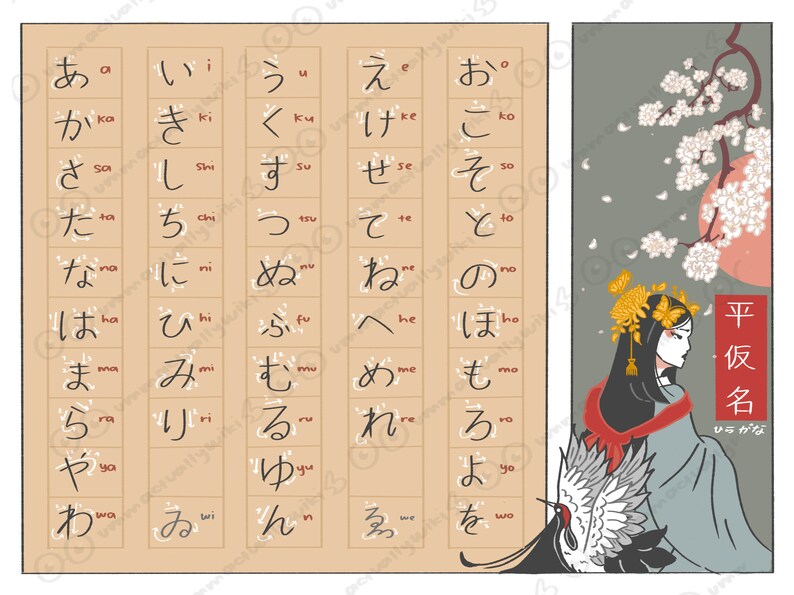 あ a い i う u え e お o
か ka き ki く ku け ke こ ko
さ sa し shi す su せ se そ so
た ta ち chi つ tsu て te と to
な na に ni ぬ nu ね ne の no
は ha ひ hi ふ fu へ he ほ ho
ま ma み mi む mu め me も mo
ら ra り ri る ru れ re ろ ro
や ya ゆ yu よ yo
わ wa ゐ wi ん n ゑ we を wo
平仮名
ひらがな